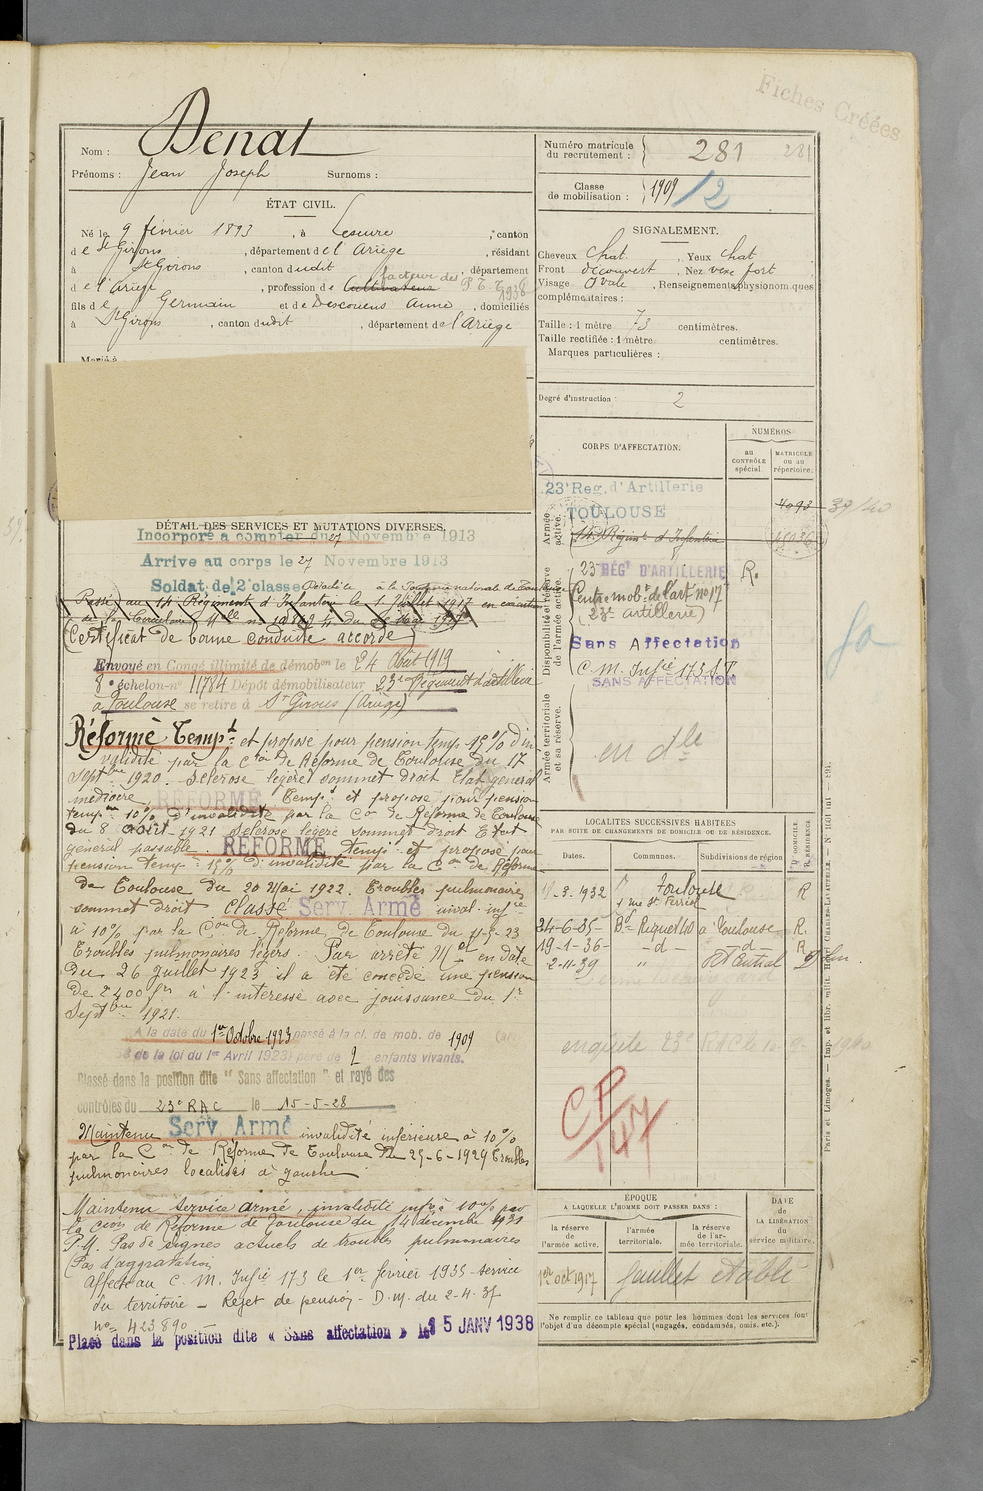 Fiches Créées
Nom : Denat
Prénoms : Jean Joseph Surnoms :
ÉTAT CIVIL.
Né le 9 février 1893, à Lescure, canton
de St Girons, département de l'Ariège, résidant
à St Girons, canton dudit, département
de l'Ariège, profession de Cultivateur facteur des P.T.T. 1938
fils de Germain et de Descouens Anne, domiciliés
à St Girons, canton dudit, département de l'Ariège
Marié à
DÉTAIL DES SERVICES ET MUTATIONS DIVERSES.
Incorporé à compter du 27 Novembre 1913
Arrivé au corps le 27 Novembre 1913
Soldat de 2e classe Détaché à la Poudrerie nationale de Toulouse
Passé au 14e Régiment d'Infanterie le 1er Juillet 1917 en exécution
de la Circulaire
Certificat de bonne conduite accordé
Envoyé en Congé illimité de démobon le 24 Août 1919
8e échelon no 11784 Dépôt démobilisateur 23e Régiment d'artillerie
à Toulouse se retire à St Girons (Ariège)
Réformé Tempt et proposé pour pension temp. 15% d'in
validité par la Cion de Réforme de Toulouse du 17
Septbre 1920. Sclérose légère sommet droit Etat général
médiocre. RÉFORMÉ Tempt et proposé pour pension
temp. 10% d'invalidité par la Con de Réforme de Toulouse
du 8 août 1921 Sclérose légère sommet droit Etat
général passable. RÉFORMÉ temp. et proposé pour
pension temp. 15% d'invalidité par la Con de Réforme
de Toulouse du 20 Mai 1922. Troubles pulmonaires
sommet droit Classé Serv. Armé inval. infre
à 10% par la Con de Réforme de Toulouse du 11-5-23
Troubles pulmonaires légers. Par arrêté Mel en date
du 26 juillet 1923 il a été concédé une pension
de 2400 frs à l'intéressé avec jouissance du 1er
Septbre 1921.
A la date du 1er Octobre 1923 passé à la cl. de mob. de 1909
de la loi du 1er Avril 1923) père de 2 enfants vivants.
Classé dans la position dite "Sans affectation" et rayé des
contrôles du 23e RAC le 15-5-28
Maintenu Serv. Armé invalidité inférieure à 10%
par la Con de Réforme de Toulouse du 25-6-1929 Troubles
pulmonaires localisés à gauche
Maintenu service armé, invalidité infre à 10% par
la Cion de Réforme de Toulouse du 14 décembre 1931
P.M. Pas de signes actuels de troubles pulmonaires
(Pas d'aggravation)
Affecté au C.M. Infie 173 le 1er février 1935 - service
du territoire - Rejet de pension - D.M. du 2-4-35
no 423890
Placé dans la position dite « Sans affectation » le 15 JANV 1938
Numéro matricule
du recrutement : 281 281
Classe
de mobilisation : 1909 /2
SIGNALEMENT.
Cheveux chat. , Yeux chat
Front découvert , Nez vexe fort
Visage Ovale , Renseignements physionomiques
complémentaires :
Taille : 1 mètre 73 centimètres.
Taille rectifiée : 1 mètre centimètres.
Marques particulières :
Degré d'instruction : 2
CORPS D'AFFECTATION.
NUMÉROS
au
CONTRÔLE
spécial.
MATRICULE
ou au
répertoire.
Armée
active.
23e Rég. d'Artillerie 4093 39/40
TOULOUSE
14e Régiment d'Infanterie
Disponibilité et réserve
de l'armée active.
23e RÉGt D'ARTILLERIE R.
Centre mobe de l'art no 17
(23e artillerie)
Sans Affectation
C M. Infie 173 S.T.
SANS AFFECTATION
Armée territoriale
et sa réserve.
en dle
LOCALITÉS SUCCESSIVES HABITÉES
PAR SUITE DE CHANGEMENTS DE DOMICILE OU DE RÉSIDENCE.
Dates. Communes. Subdivisions de région
D. DOMICILE.
R. RÉSIDENCE.
11-3-1932 Toulouse R
24-6-35 Bd Riquet 40 à Toulouse R.
19-1-36 -d- -d- R
2-11-39 "
enquête 23e RAC
CP
147
ÉPOQUE
A LAQUELLE L'HOMME DOIT PASSER DANS :
la réserve
de
l'armée active.
l'armée
territoriale.
la réserve
de l'ar-
mée territoriale.
DATE
de
LA LIBÉRATION
du
service militaire.
1er oct 1917 feuillet établi
Ne remplir ce tableau que pour les hommes dont les services font
l'objet d'un décompte spécial (engagés, condamnés, omis, etc.).
Paris et Limoges. — Imp. et libr. milit. Henri CHARLES-LAVAUZELLE.